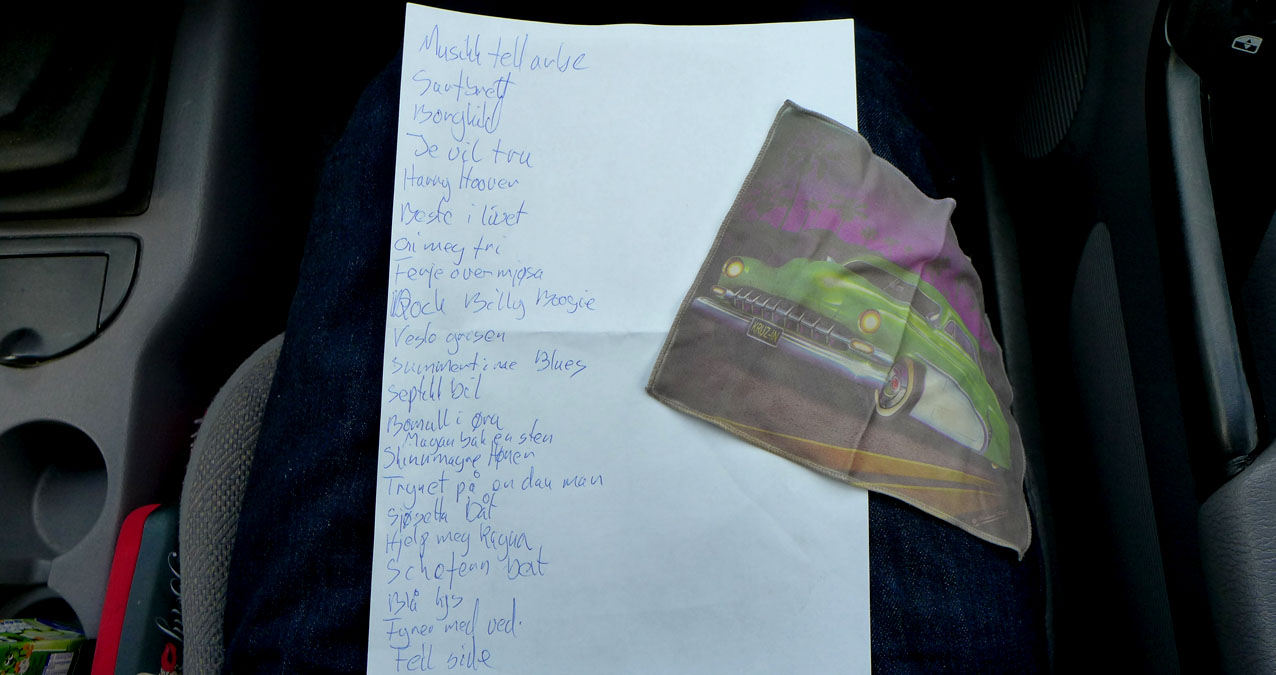 Musikk tell anbe
Surfbrett
Borghild
Je vil tru
Harry Hoover
Beste i livet
Gi meg fri
Ferje over mjøsa
Rock Billy Boogie
Veslo grisen
Summertime Blues
Septikk bil
Bomull i øra
Magan bak en sten
Trynet på en dau man
Sjøsetta båt
Hjelp meg Ragna
båt
Blå lys
Fyrer med ved.
Fell side
KRUZ-IN